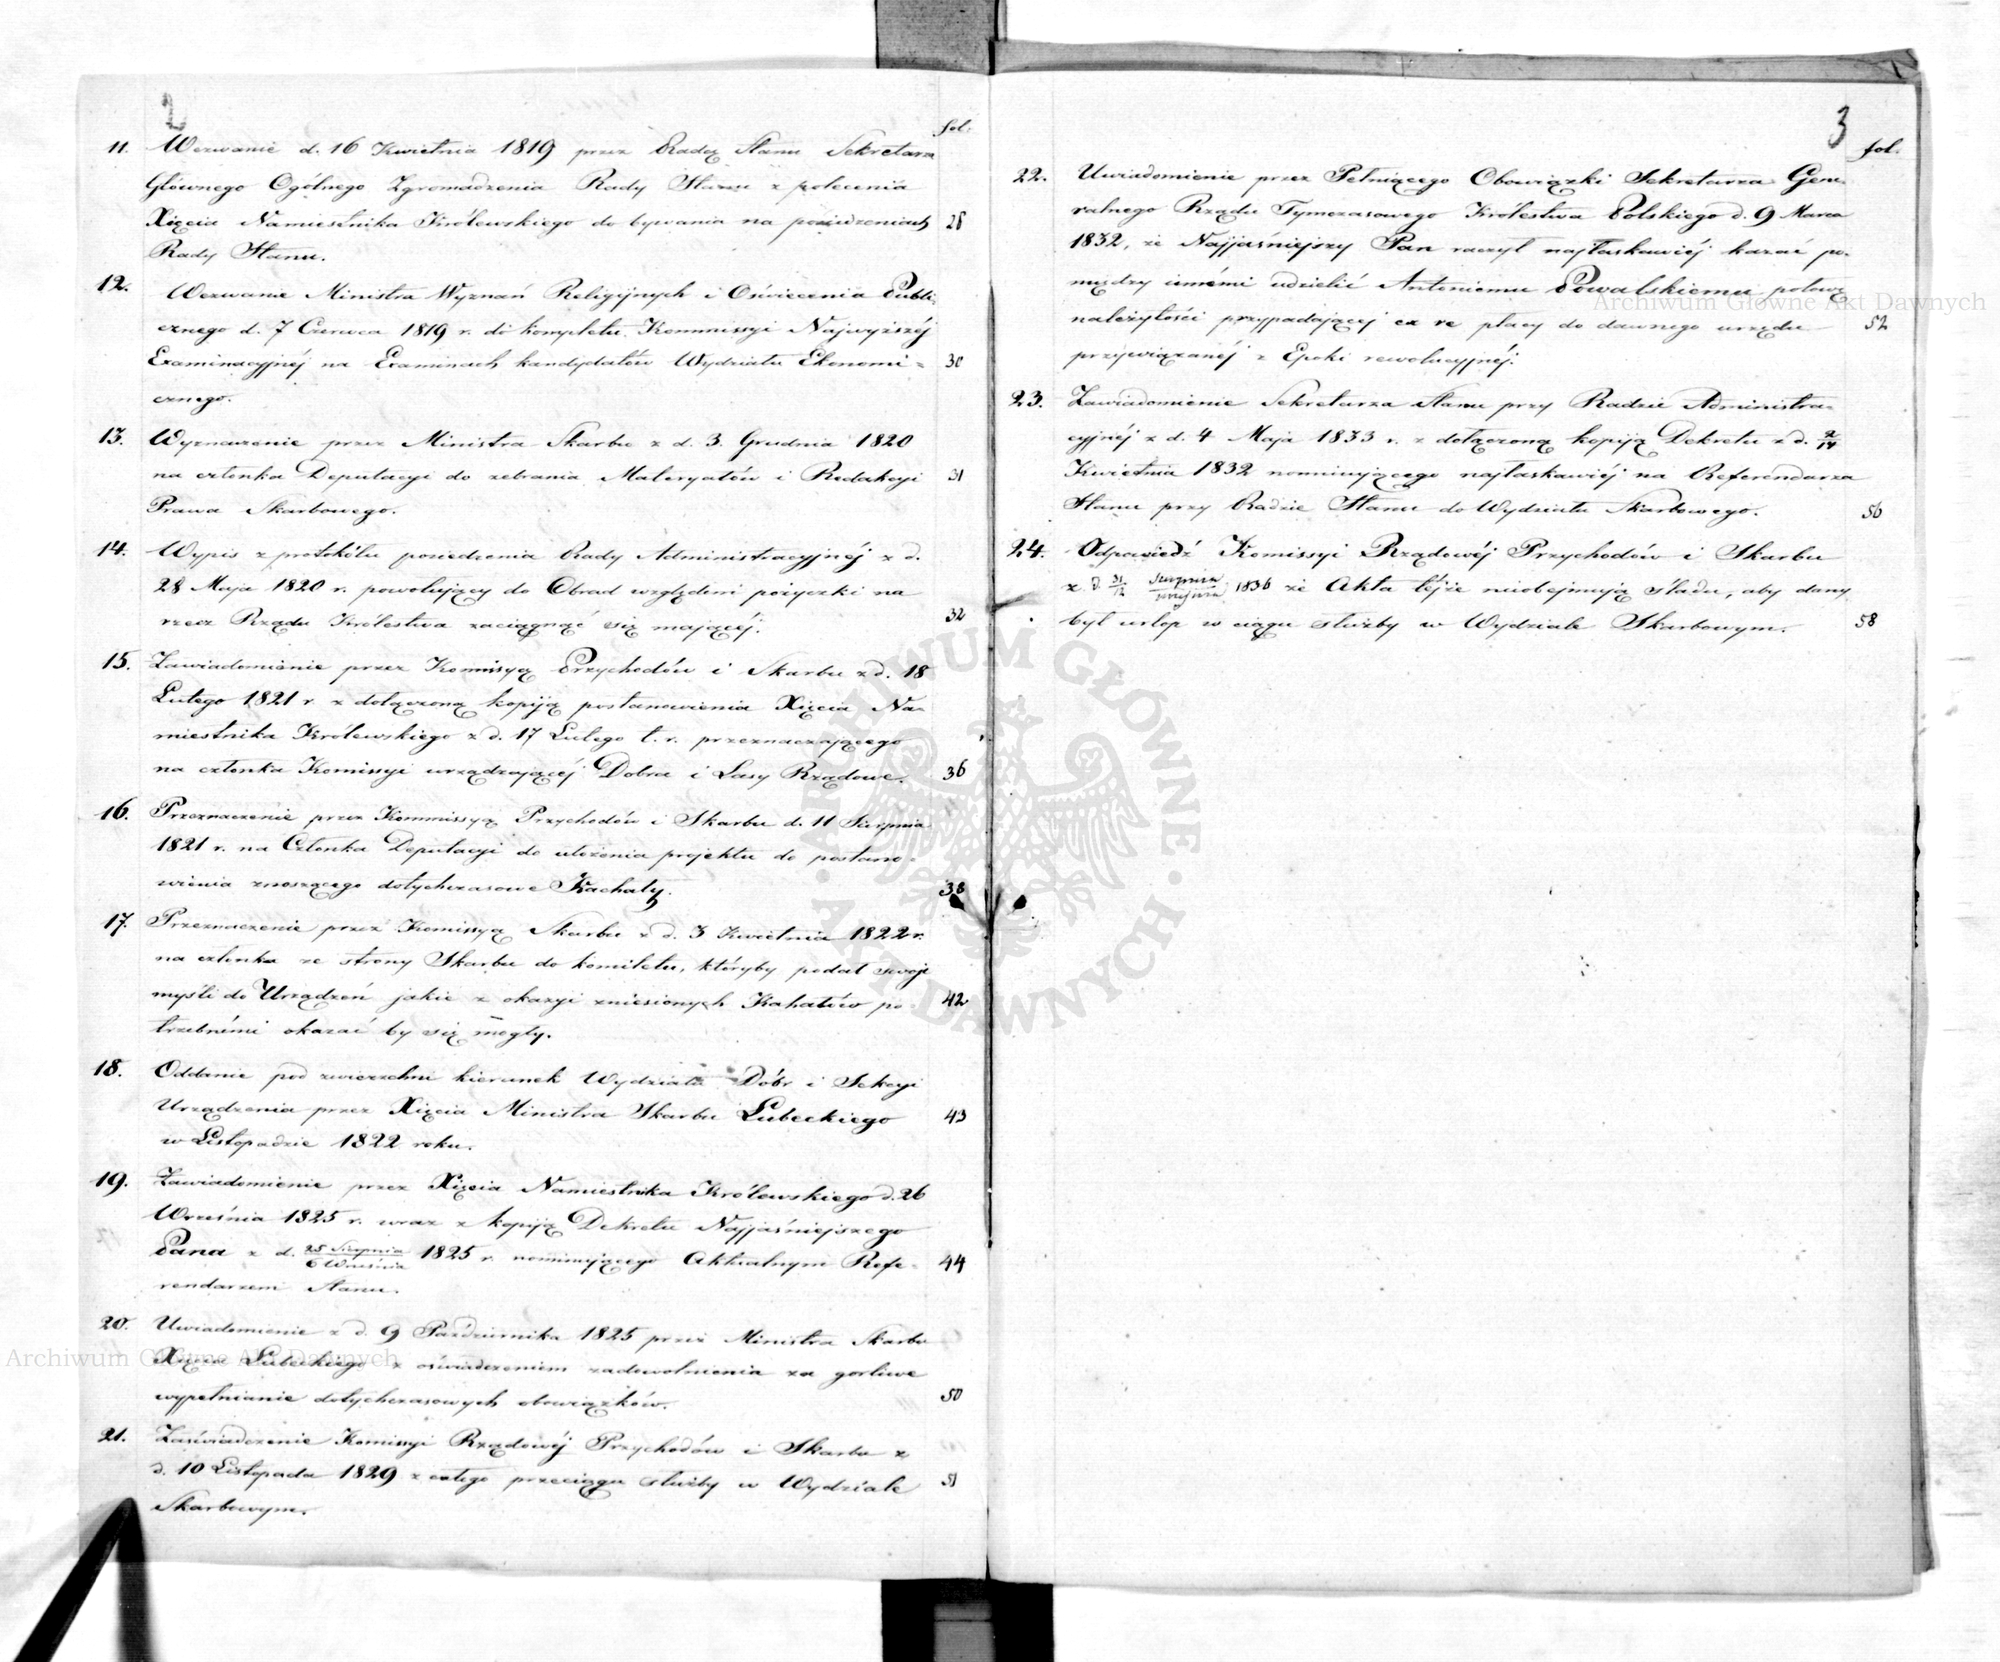 2
fol.
11. Wezwanie d. 16 Kwietnia 1819 przez Radcę Stanu Sekretarza
Głównego Ogólnego Zgromadzenia Rady Stanu z polecenia
Xięcia Namiestnika Królewskiego do bywania na posiedzeniach 28
Rady Stanu.
12. Wezwanie Ministra Wyznań Religijnych i Oświecenia Publi-
cznego d. 7 Czerwca 1819 r. do kompletu Kommissyi Najwyższéj
Examinacyjnéj na Examinach kandydatów Wydziału Ekonomi= 30
cznego.
13. Wyznaczenie przez Ministra Skarbu z d. 3. Grudnia 1820
na członka Deputacyi do zebrania Materyałów i Redakcyi 31
Prawa Skarbowego.
14. Wypis z protokółu posiedzenia Rady Administracyjnéj z d.
28 Maja 1820 r. powołujący do Obrad względem pożyczki na
rzecz Rządu Królestwa zaciągnąć się mającéj. 32
15. Zawiadomienie przez Komissyą Przychodów i Skarbu z d. 18
Lutego 1821 r. z dołączoną kopiją postanowienia Xięcia Na-
miestnika Królewskiego z d. 17 Lutego t. r. przeznaczającego
na członka Komissyi urządzającéj Dobra i Lasy Rządowe. 36
16. Przeznaczenie przez Kommissyą Przychodów i Skarbu d. 11 Sierpnia
1821 r. na Członka Deputacyi do ułożenia projektu do postano-
wienia znoszącego dotychczasowe Kachały. 38
17. Przeznaczenie przez Komissyą Skarbu z d. 3 Kwietnia 1822 r.
na członka ze strony Skarbu do komitetu, któryby podał swoje
myśli do Urządzeń jakie z okazyi zniesionych Kahałów po- 42
trzebnémi okazać by się mogły.
18. Oddanie pod zwierzchni kierunek Wydziału Dóbr i Sekcyi
Urządzenia przez Xięcia Ministra Skarbu Lubeckiego 43
w Listopadzie 1822 roku.
19. Zawiadomienie przez Xięcia Namiestnika Królewskiego d. 26
Września 1825 r. wraz z kopiją Dekretu Najjaśniejszego
Pana z d. 25 Sierpnia / 6 Września 1825 r. nominującego Aktualnym Refe- 44
rendarzem Stanu.
20. Uwiadomienie z d. 9 Października 1825 przez Ministra Skarbu
Xięcia Lubeckiego z oświadczeniem zadowolnienia za gorliwe
wypełnianie dotychczasowych obowiązków. 50
21. Zaświadczenie Komissyi Rządowéj Przychodów i Skarbu z
d. 10 Listopada 1829 z całego przeciągu służby w Wydziale 51
Skarbowym.
3
fol.
22. Uwiadomienie przez Pełniącego Obowiązki Sekretarza Gene-
ralnego Rządu Tymczasowego Królestwa Polskiego d. 9 Marca
1832, że Najjaśniejszy Pan raczył najłaskawiéj kazać po-
między innémi udzielić Antoniemu Powalskiemu połowę
należytości przypadającéj ex re płacy do dawnego urzędu 52
przywiązanéj z Epoki rewolucyjnéj.
23. Zawiadomienie Sekretarza Stanu przy Radzie Administra-
cyjnéj z d. 4 Maja 1833 r. z dołączoną kopiją Dekretu z d. 2/14
Kwietnia 1832 nominującego najłaskawiéj na Referendarza
Stanu przy Radzie Stanu do Wydziału Skarbowego. 56
24. Odpowiedź Komissyi Rządowéj Przychodów i Skarbu
z d. 31/12 Sierpnia/Września 1836 że Akta téjże nieobejmują śladu, aby dany
był urlop w ciągu służby w Wydziale Skarbowym. 58
Archiwum Główne Akt Dawnych
Archiwum Główne Akt Dawnych
ARCHIWUM GŁÓWNE · AKT DAWNYCH ·